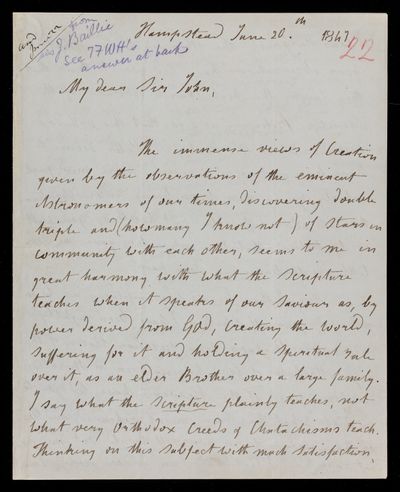 and answer
from J. Baillie
See JFWH's
answer at back
Hampstead June 20.th 1843
22
My dear Sir John,
The immense views of Creation
given by the observations of the eminent
Astronomers of our times, discovering double
triple and (how many I know not) of Stars in
community with each other, seems to me in
great harmony with what the scripture
teaches when it speaks of our Saviour as, by
power derived from God, creating the world,
suffering for it and holding a spiretual rule
over it, as an elder Brother over a large family.
I say what the scripture plainly teaches, not
what very Orthodox Creeds & Chatachisms teach.
Thinking on this subject with much satisfaction,